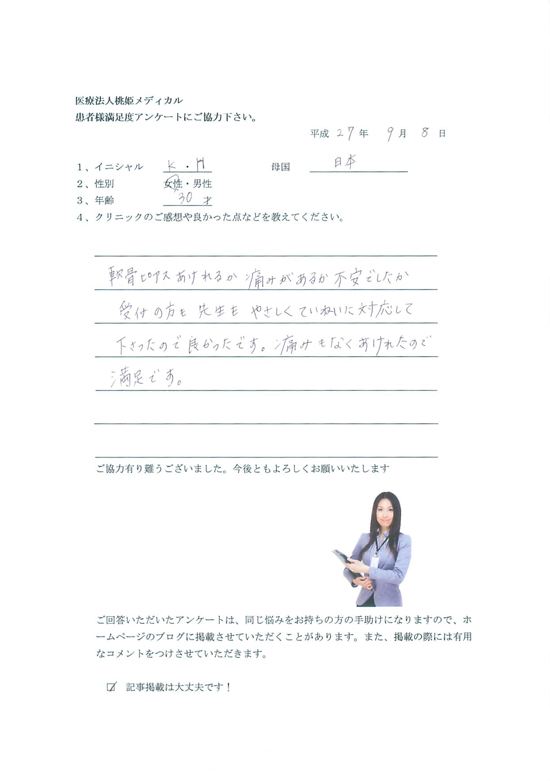 医療法人桃姫メディカル
患者様満足度アンケートにご協力下さい。
平成 27 年 9 月 8 日
1、イニシャル K・H 母国 日本
2、性別 女性・男性
3、年齢 30 才
4、クリニックのご感想や良かった点などを教えてください。
軟骨ピアスあけれるか 痛みがあるか 不安でしたが
受付の方も 先生も やさしくていねいに対応して
下さったので良かったです。痛みもなくあけれたので
満足です。
ご協力有り難うございました。今後ともよろしくお願いいたします
ご回答いただいたアンケートは、同じ悩みをお持ちの方の手助けになりますので、ホ
ームページのブログに掲載させていただくことがあります。また、掲載の際には有用
なコメントをつけさせていただきます。
☑ 記事掲載は大丈夫です！